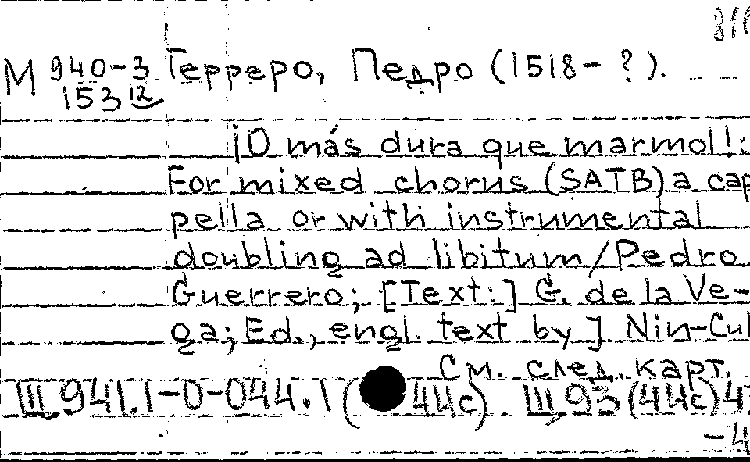 М 940-3 Герреро, Педро (1518- ?).
153 12
¡O más dura que marmol!:
For mixed chorus (SATB) a cap
pella or with instrumental
doubling ad libitum/Pedro
Guerrero; [Text:] G. de la Ve-
ga; Ed., engl. text by J Nin-Cul
См. след. карт.
Ш 941.1-0-044.1 ( 44с) Ш 93 (44с) 4
-4